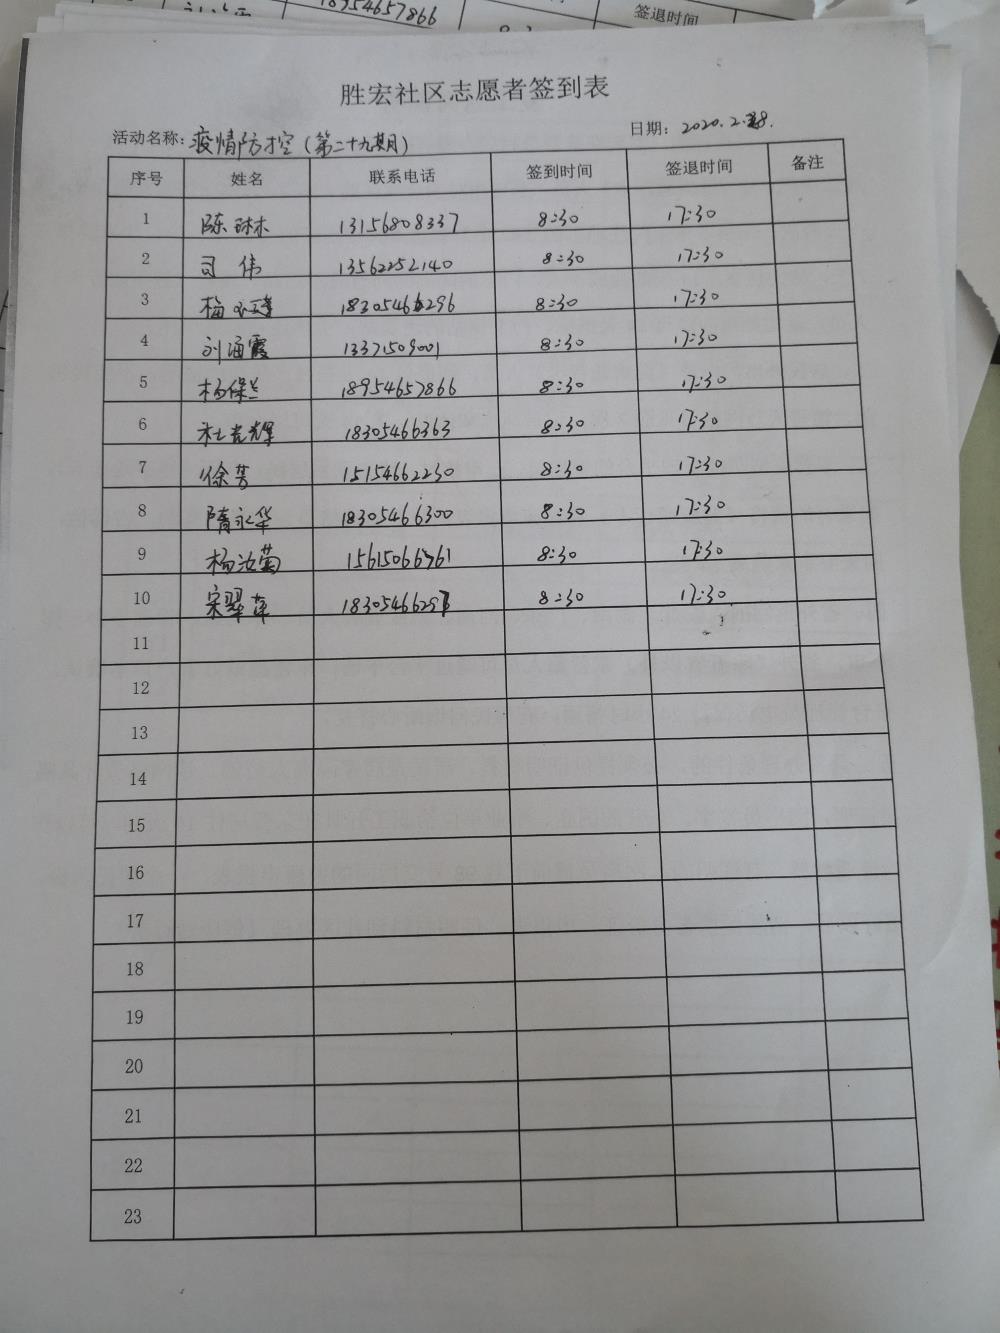 18954657866
签退时间
胜宏社区志愿者签到表
活动名称：疫情防控（第二十九期） 日期：2020.2.28.
序号 姓名 联系电话 签到时间 签退时间 备注
1 陈琳木 13156808337 8:30 17:30
2 司伟 13562252140 8:30 17:30
3 梅 18305466296 8:30 17:30
4 刘海霞 13371509001 8:30 17:30
5 杨保兰 18954657866 8:30 17:30
6 杜光辉 18305466363 8:30 17:30
7 徐芳 15154662230 8:30 17:30
8 隋永华 18305466300 8:30 17:30
9 杨汝菊 8:30 17:30
10 宋翠萍 18305466297 8:30 17:30
11
12
13
14
15
16
17
18
19
20
21
22
23